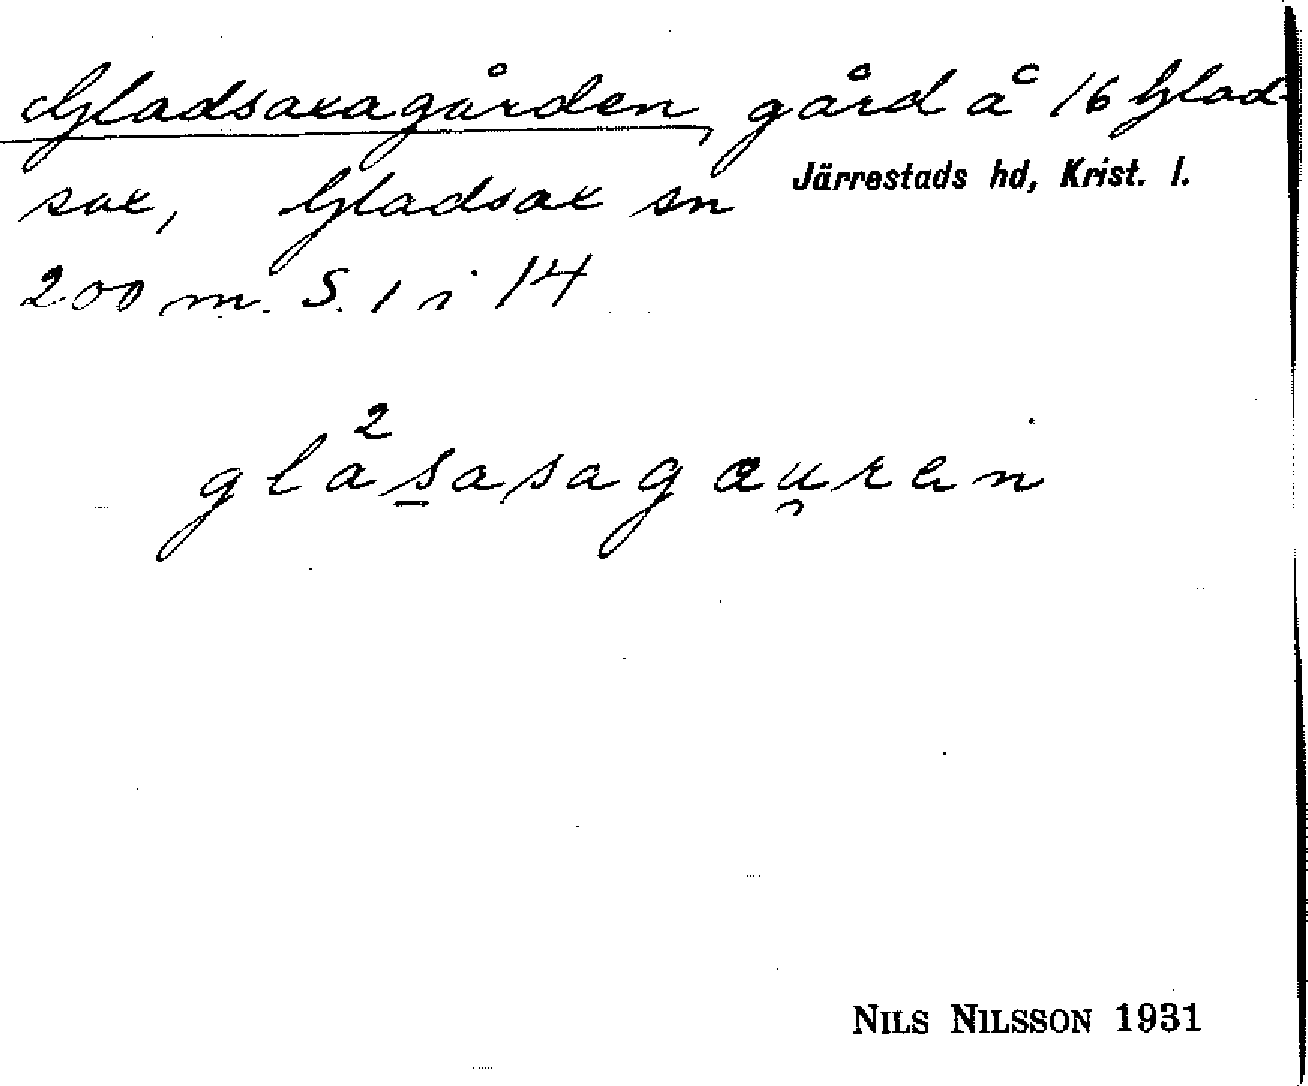 Gladsaxagården, gård å 16 Glad-
sax, Gladsax sn Järrestads hd, Krist. l.
200 m. S. 1 i 14
2
glasasagauren
NILS NILSSON 1931